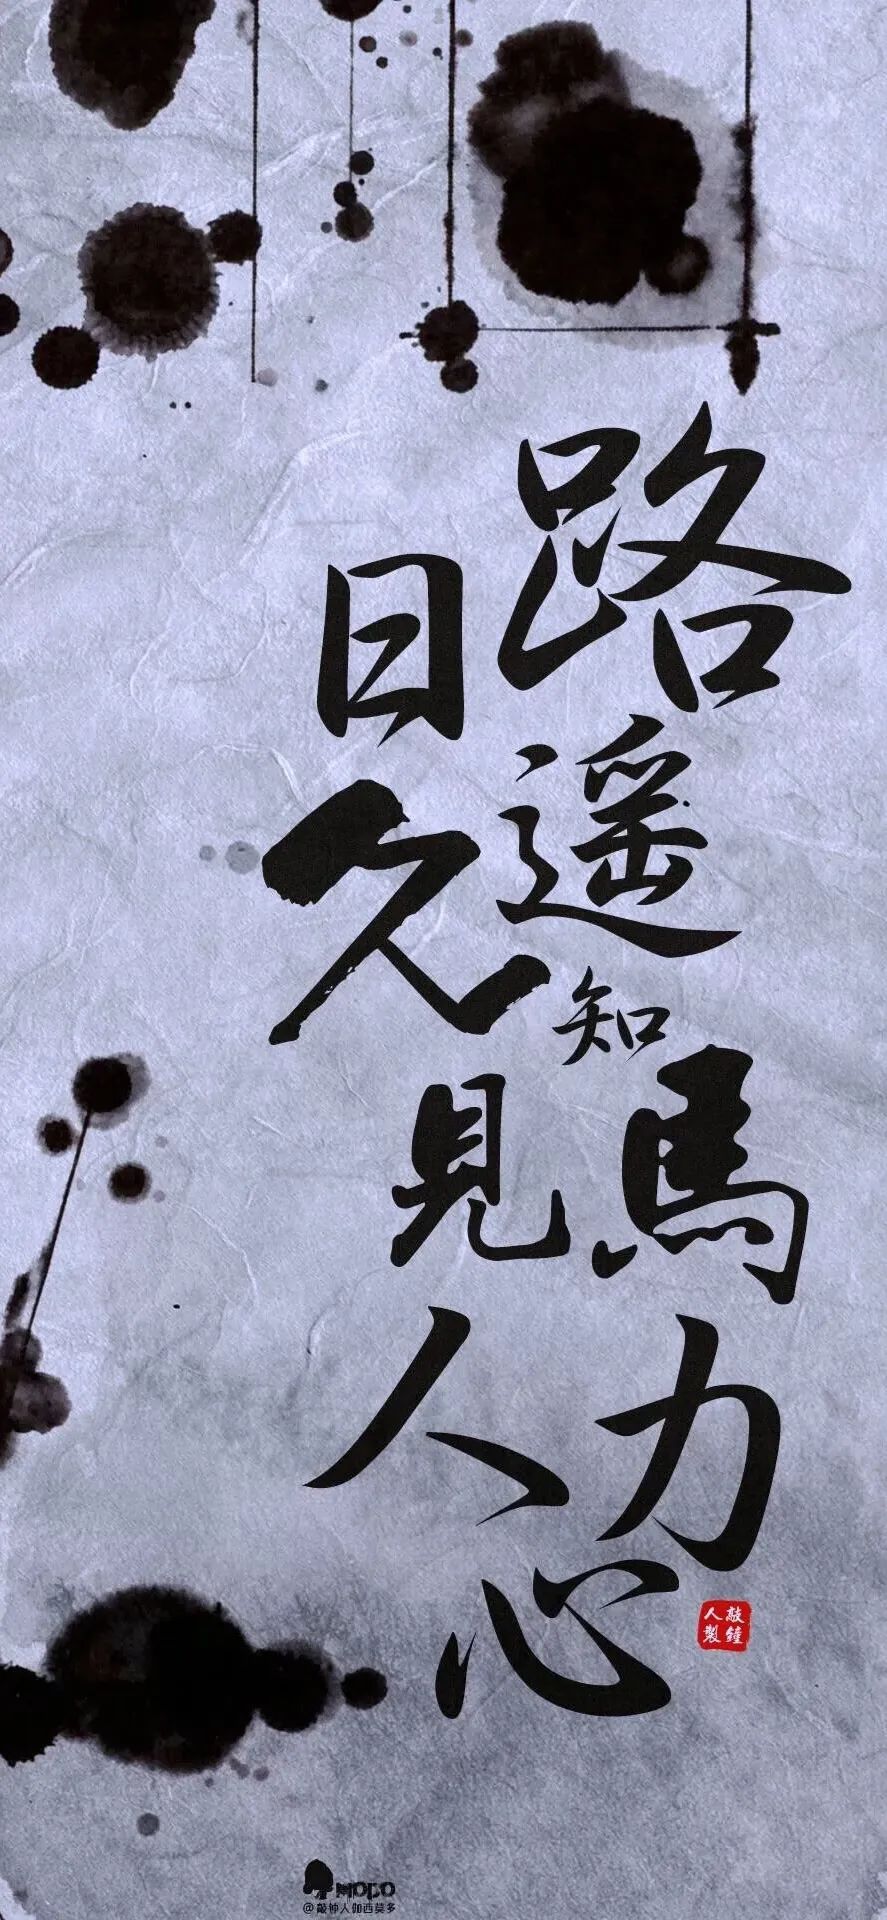 路遥知馬力
日久見人心
敲鐘
人製
MODO
@敲钟人伽西莫多